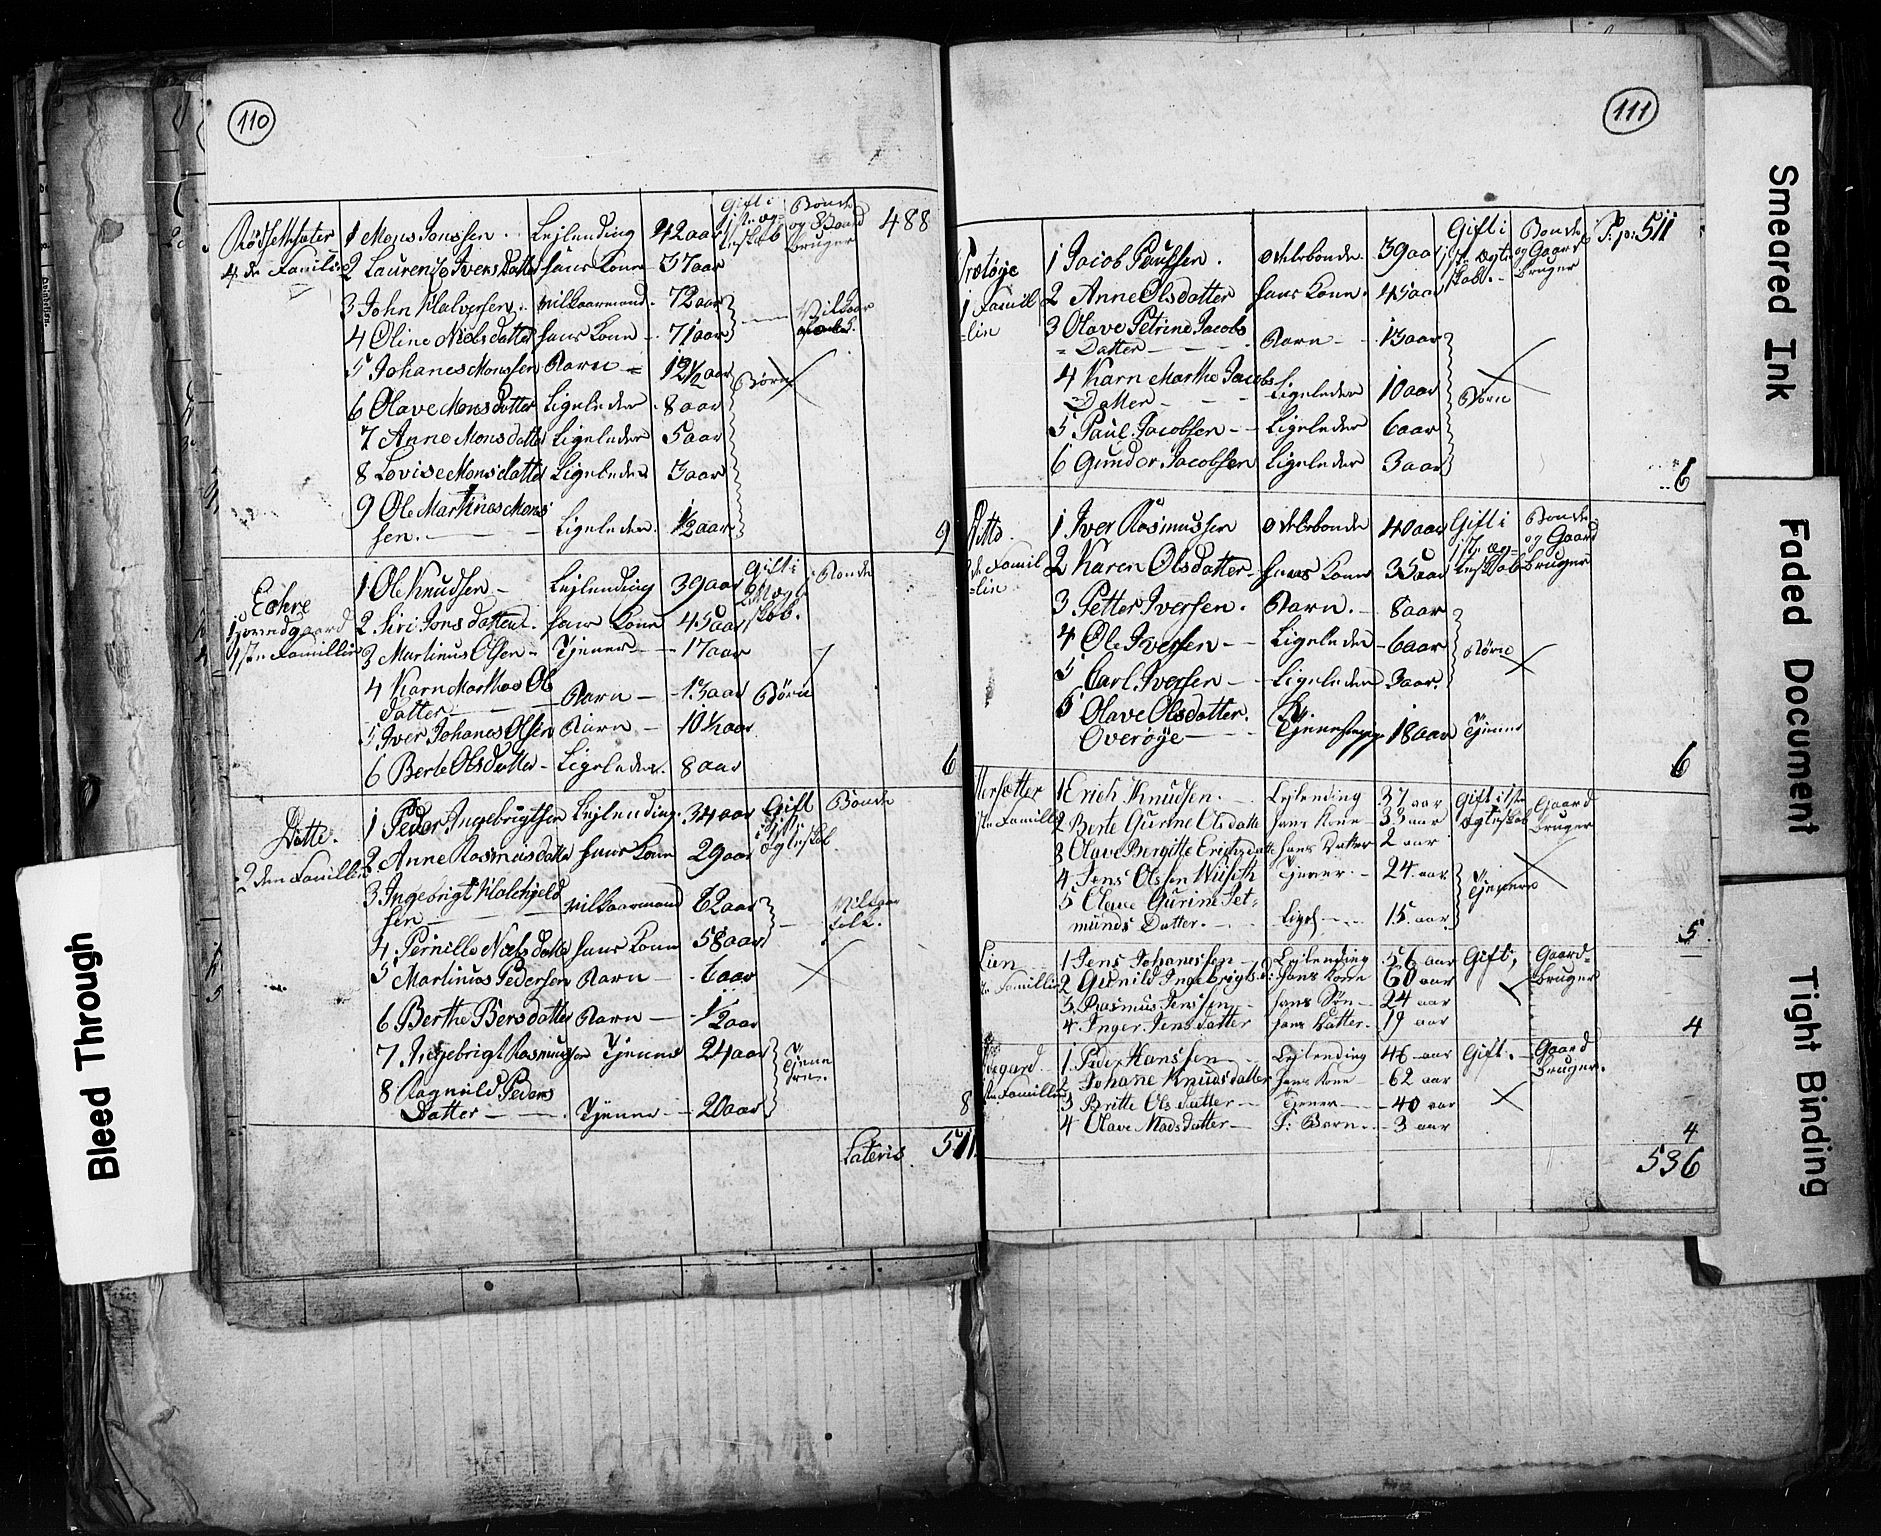 110
Rödsethsæter 1 Mons Jonssen Lejlending 42 aar Gift i 1ste Ægteskab Bonde og Gaard bruger 488
4de Familie 2 Laurenze Ivers Datter hans Kone 37 aar
3 John Halvorsen vilkaarmand 72 aar
4 Oline Niels datter hans Kone 71 aar
5 Johanes Monssen Barn 12½ aar Børn
6 Olave Mons datter Ligeleder 8 aar
7 Anne Mons datter Ligeleder 5 aar
8 Lovise Mons datter Ligeleder 3 aar
9 Ole Martinus Mons
sen. Ligeleder. ½ aar 9
1 Ole Knudsen Lejlending 39 aar Gift i Bonde
2 Siri Jons datter hans Kone 45 aar
1ste Familie 3 Martinus Olsen Tjener 17 aar
4 Karn Marthas Ols
datter Barn 13 aar Børn
5 Iver Johanes Olsen Barn 10½ aar
6 Berte Ols datter Ligeleder. 8 aar 6
Ditto. 1 Peder Ingebrigtsen Lejlending 34 aar Gift i Ægteskab Bonde
2den Familie 2 Anne Rasmusdatter hans Kone 29 aar
3 Ingebrigt
sen vilkaarmand 62 aar Vilkaar folk.
4 Pernille Niels datter hans Kone 58 aar
5 Martinus Pedersen Barn 6 aar
6 Berthe Pers datter Barn ½ aar
7 Ingebrigt Rasmussen Tjener 24 aar
8 Ragnild Peders
Datter Tjener 20 aar 8
Lateris 511
111
1 Jacob Paulsen. Odelsbonde 39 aar Gift i 1ste Ægteskab. Bonde og Gaard bruger 511
1 Famil=lie 2 Anne Olsdatter hans Kone. 45 aar
3 Olave Petrine Jacobs
=Datter Barn 13 aar
4 Karn Marthe Jacobs
Datter Ligeleder 10 aar Børn
5 Paul Jacobsen Ligeleder 6 aar
6 Gunder Jacobsen Ligeleder 3 aar 6
Ditto. 1 Iver Rasmussen Odelsbonde 40 aar Gift i 1ste Ægteskab Bonde og Gaard bruger
2 Karen Olsdatter hans Kone 35 aar
3 Petter Iversen. Barn. 8 aar
4 Ole Iversen Ligeleder 6 aar Børn
5 Carl Iversen Ligeleder 3 aar.
6 Olave Olsdatter.
Overøje 18 aar Tjener 6
1 Erich Knudsen. Lejlending 37 aar Gift i 1ste Ægteskab Gaard bruger
2 Berte Gurine Ols datter hans Kone 33 aar
3 Olave Bergitte Erichsdatter hans Datter 2 aar
4 Jens Olsen Tjener 24 aar Tjenere
5 Olave Gurine Pet=
munds Datter. Lige 15 aar 5
Lien 1 Jens Johanssen Lejlending 56 aar Gift, Gaard=bruger
2 Gunild Ingebrigts D: hans Kone 60 aar
3 Rasmus Jenssen hans Søn 24 aar
4 Inger Jens datter hans Datter. 19 aar 4
1 Peder Hanssen Lejlending 46 aar Gift. Gaard bruger.
2 Johane Knudsdatter hans Kone 62 aar
3 Britte Ols datter Tjener 40 aar
4 Olave Mads datter Barn 3 aar 4
536
Smeared Ink
Faded Document
Tight Binding
Bleed Through